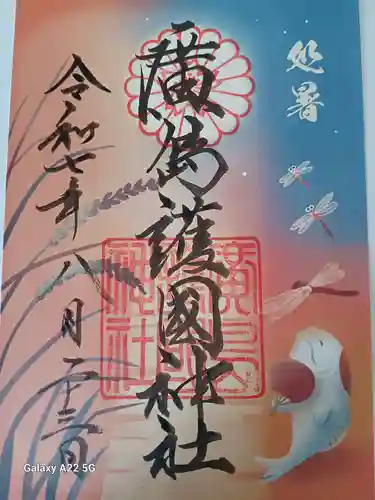 処暑
廣島護國神社
令和七年八月二十三日
Galaxy A22 5G